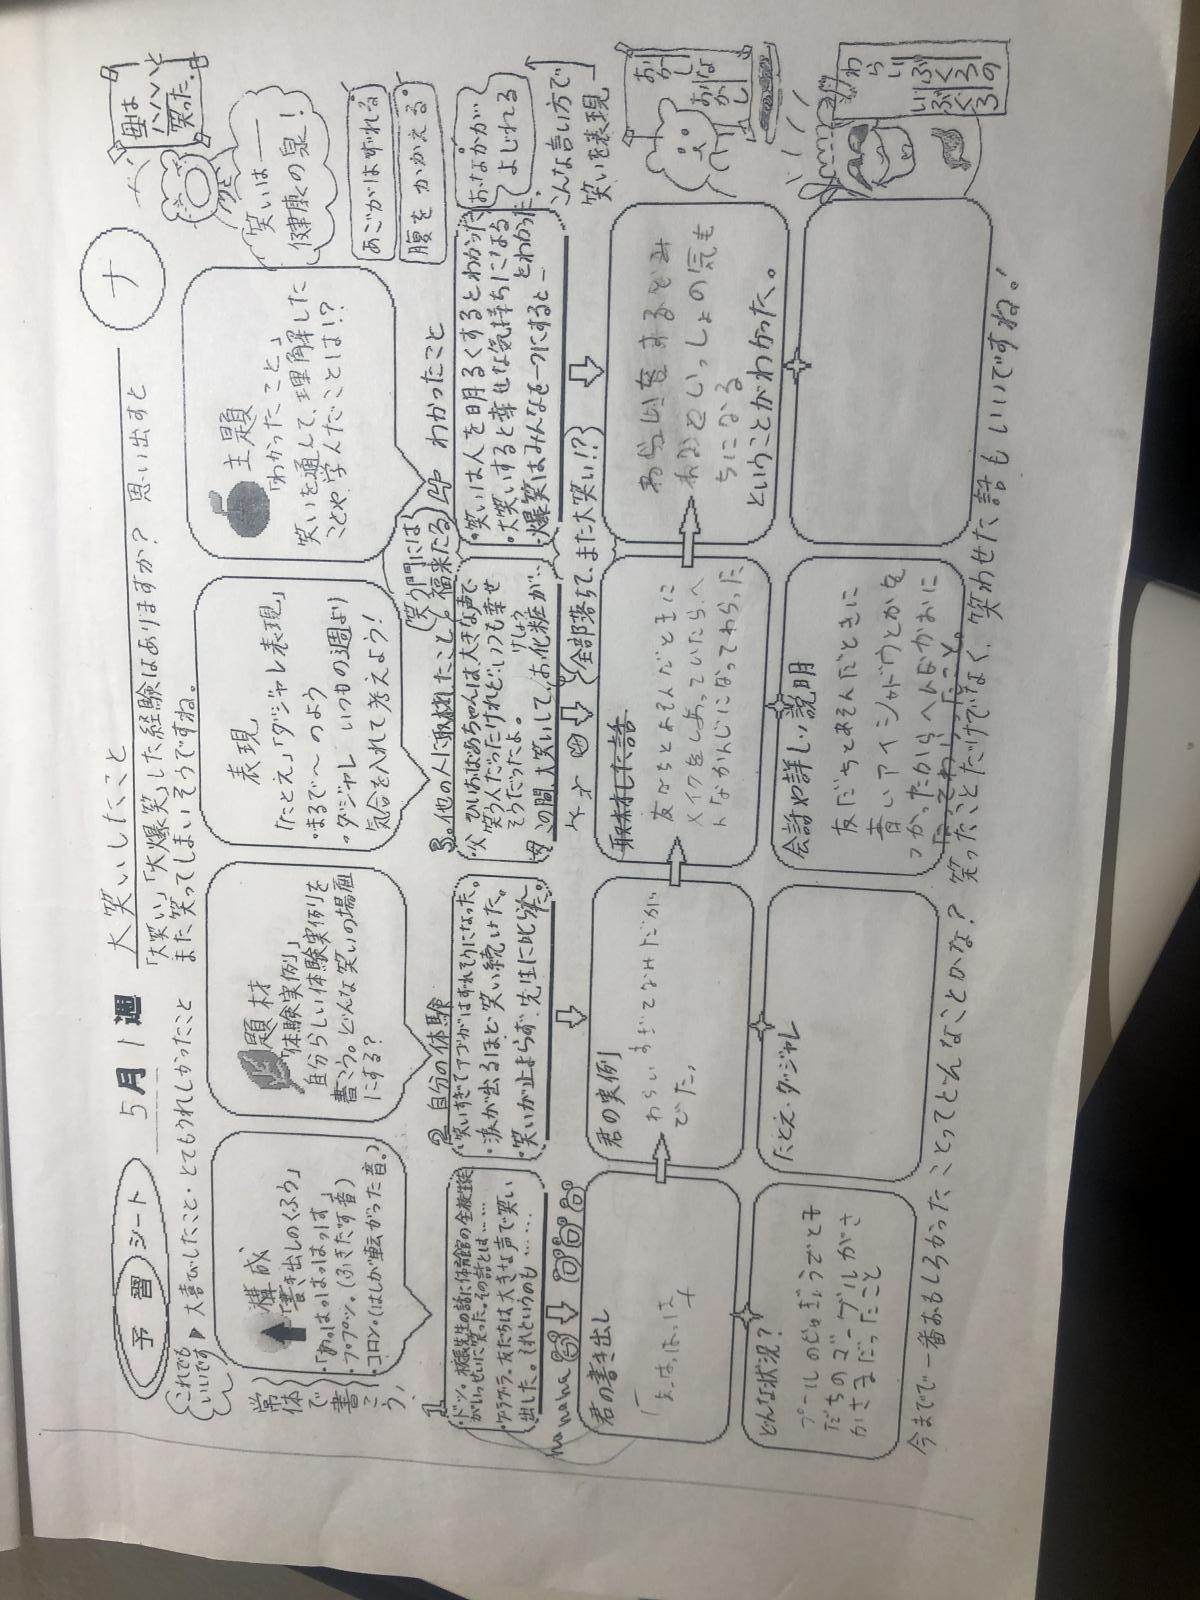 予習シート 5月1週 大笑いしたこと ナ
これでもいいです▶大喜びしたこと・とてもうれしかったこと
「大笑い」「大爆笑」した経験はありますか？ 思い出すと
また笑ってしまいそうですね。
母は
ハハハと
笑った。
常体で書こう、
構成
「書き出しのくふう」
・「わっはっはっはっは」
・ププププッ。(ふきだす音)
・コロン。(はしが転がった音。)
題材
「体験実例」
自分らしい体験実例を
書こう。どんな笑いの場面
にする？
表現
「たとえ」「ダジャレ表現」
・まるで〜のよう
・ダジャレ いつもの週より
気合を入れて考えよう！
主題
「わかったこと」
笑いを通して、理解した
ことや学んだことは!?
笑いは――
健康の泉！
あごがはずれる
腹をかかえる
おなかが
よじれる
こんな言い方で
笑いを表現
1
・ドッ。校長先生の話に体育館の全校生徒
がいっせいに笑った。その話とは……
・ゲラゲラ。友だちは大きな声で笑い
出した。それというのも……
2 自分の体験
・笑いすぎてアゴがはずれそうになった。
・涙が出るほど、笑い続けた。
・笑いが止まらず先生に叱られた。
3。他の人に取材したこと。
・父 ひいおばあちゃんは、大きな声で
笑う人だったけれど、いつも幸せ
そうだったよ。
母 この間、大笑いして、お化粧が…
けしょう
全部落ちて、また大笑い!?
笑う門には
福来たる
4 わかったこと
・笑いは人を明るくするとわかった
・大笑いすると幸せな気持ちになる
とわかった
・爆笑はみんなを一つにすると―
hahaha
君の書き出し
君の実例
わらいすぎてなみだが
でた。
取材した話
友だちとあそんだときに
メイクをしあっていたら、へ
んなかんじになってわらった
みんなといっしょの気も
ちになる
ということがわかった。
どんな状況？
プールのじゅぎょうで友
だちのゴーグルがさ
かさまだったこと
たとえ・ダジャレ
会話や詳しい説明
友だちとあそんだときに
青いアイシャドウとかを
つかったからへんなかおに
今までで一番おもしろかったことってどんなことかな？ 笑ったことだけでなく、笑わせた話もいいですね。
おかし
おなかし
わらい
ぶくろの
いぶくろ